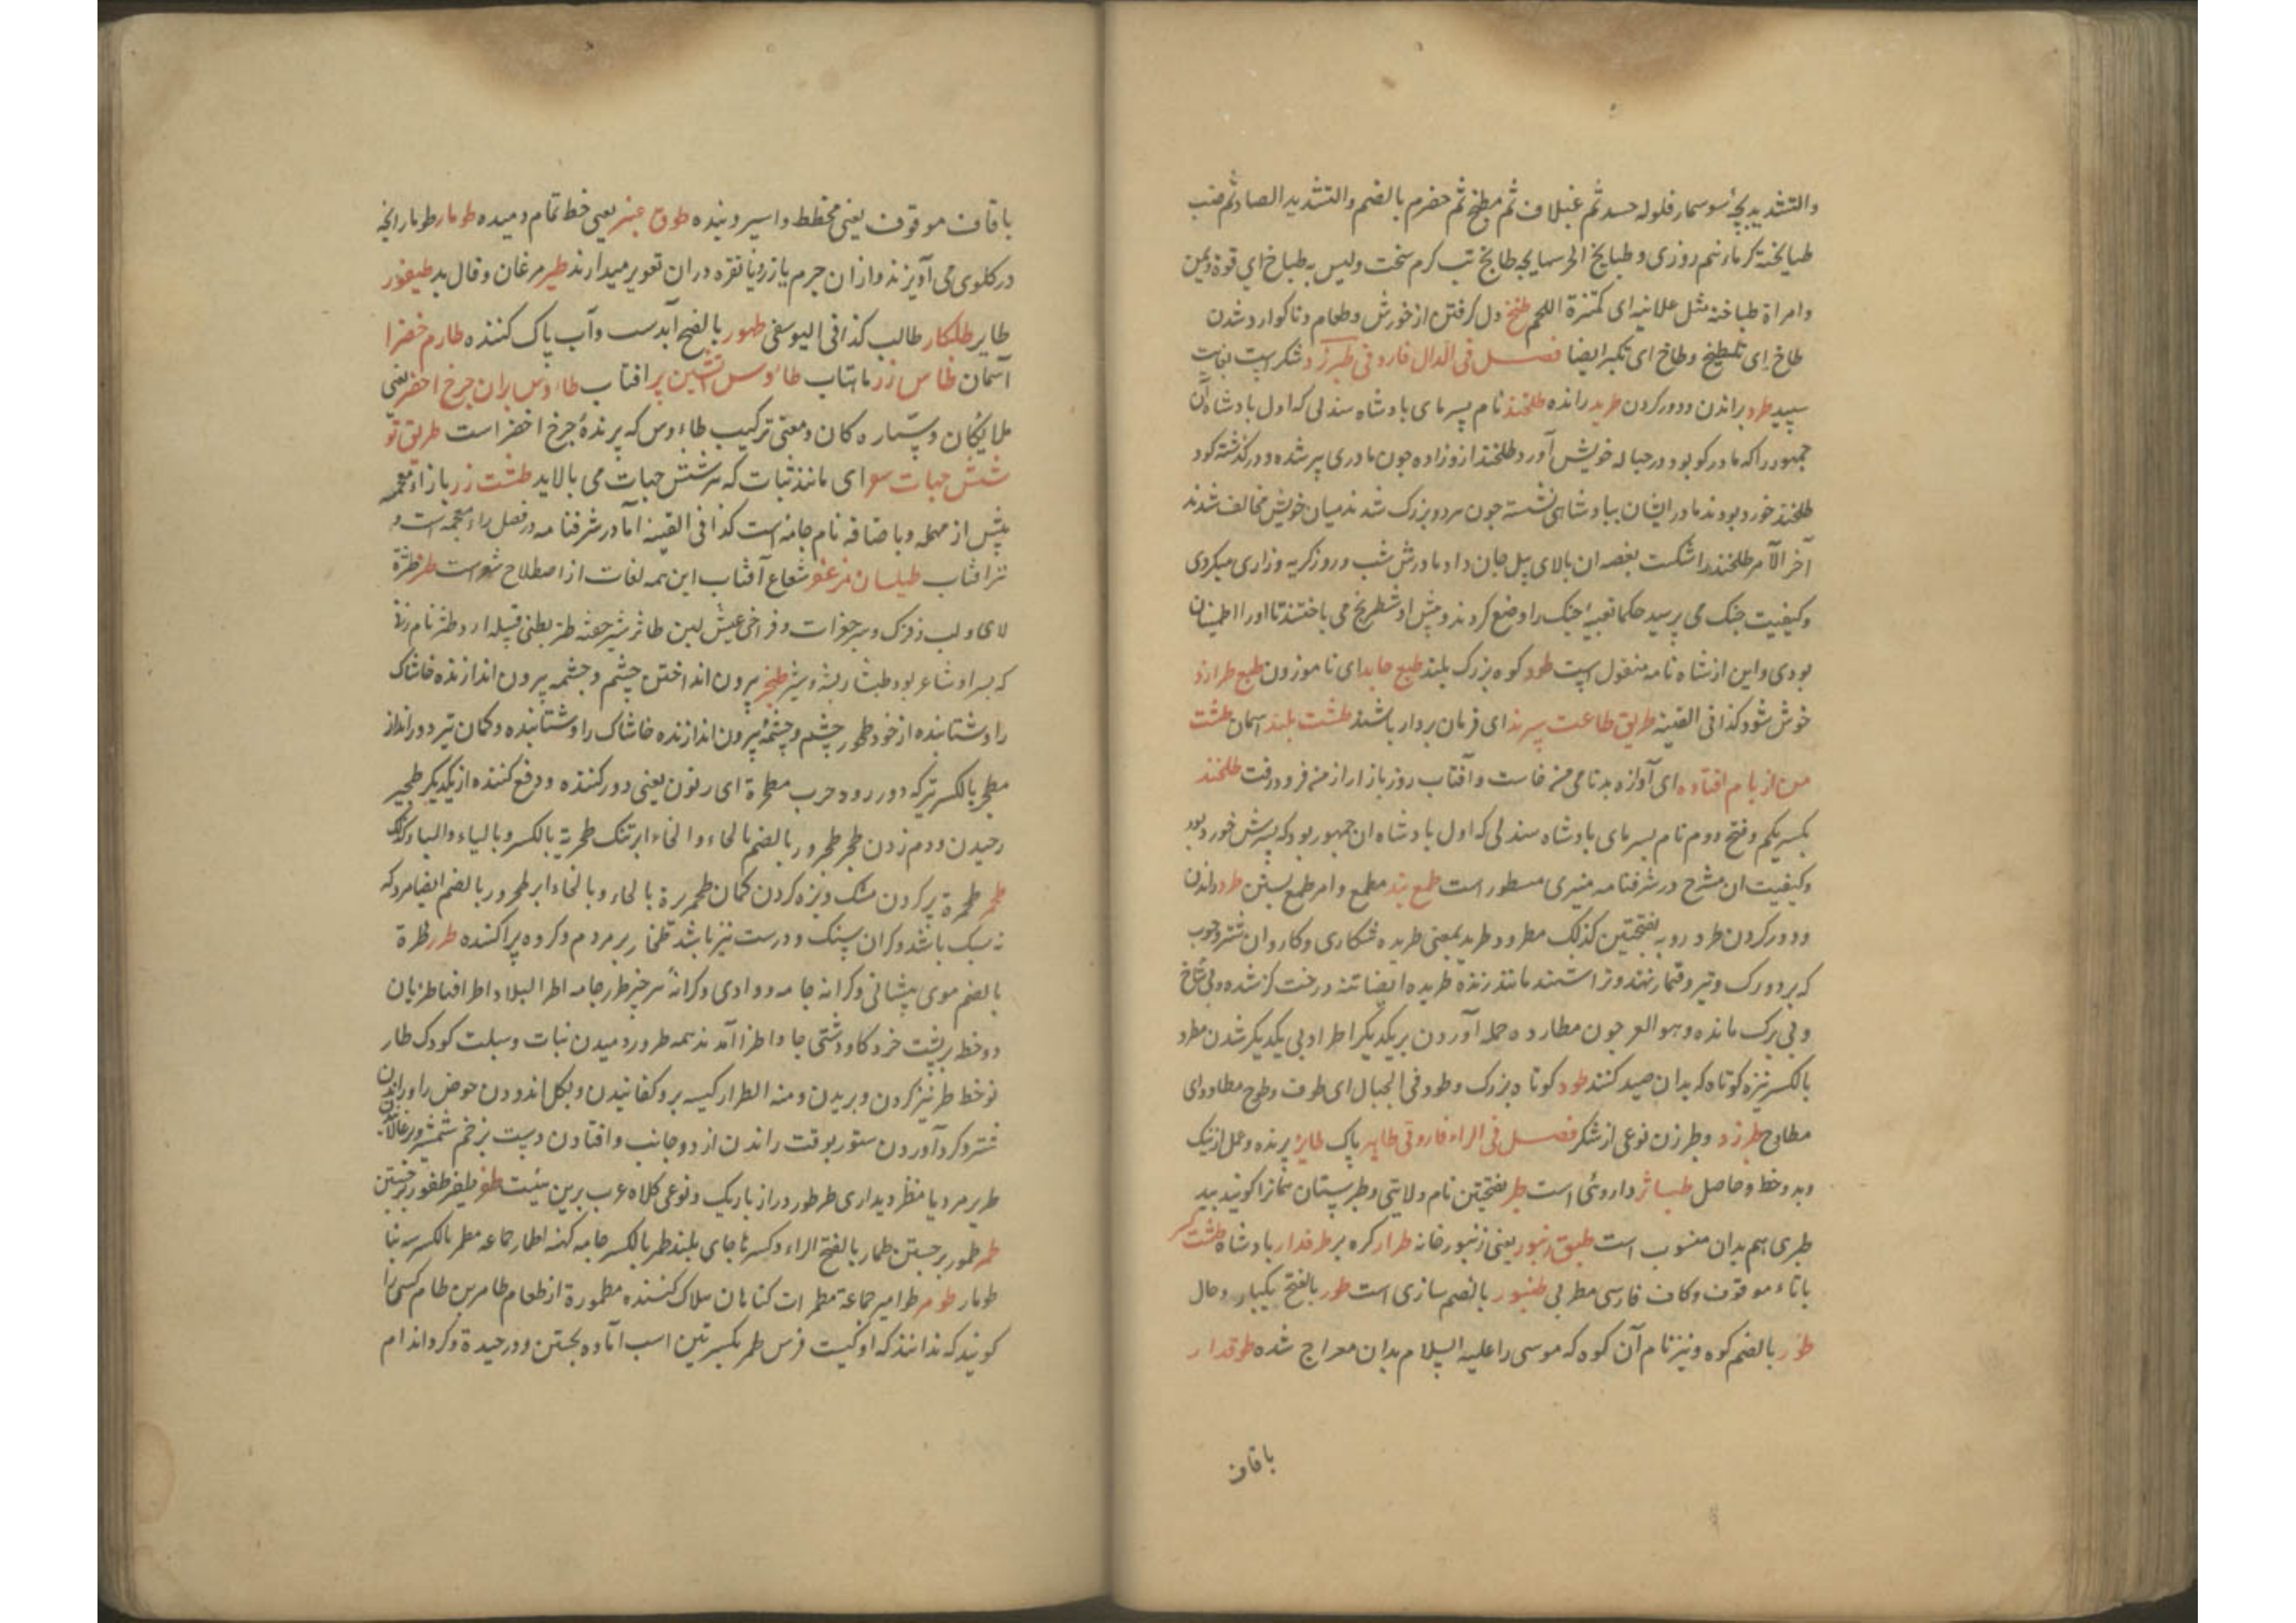 والتشدید بچهٔ سوسمار فلوله حسد ثم غبلاف ثم مطبخ ثم حضرم بالضم والتشدید الصاد ثم ضب
طبایخة کرمای نیم روزی و طبایخ الحر سمایجه طابخ تب کرم سخت ولیس به طباخ ای قوة
وامراة طباخة مثل علانیه ای مکتنزة اللحم طنخ دل کرفتن از خورش وطعام وناکوارد شدن
طاخ ای تلطیخ وطاخ ای تکبر ایضا فصل فی الدال فاروقی طبرزد شکریست بغایت
سپید طرد براندن ودور کردن طرید رانده طلخند نام پسر مای بادشاه سندلی که اول بادشاه آن
جمهور را که مادر کو بود در حباله خویش آورد طلخند ازو زاده چون مای پیر شده ودر کذشته کود
طلخند خورد بودند مادر ایشان ببادشاهی نشسته چون مرد وبزرک شدند میان خویش مخالف شدند
آخر الامر طلخند را شکست بغصه ان بالای پیل جان داد مادرش شب وروز کریه وزاری میکردی
وکیفیت جنک می پرسید حکما تعبیه جنک را وضع کردند وپیش او شطرنج می باختند تا اورا اطمینان
بودی واین از شاه نامه منقول است طود کوه بزرک بلند طبع جامد ای ناموزون طبع طرازد
خوش شود کذا فی القنیه طریق طاعت سپرند ای فرمان بردار باشند طشت بلند اسمان طشت
من از بام افتاده ای آوازه بدنامی من خاست وآفتاب روز بازار از من فرو رفت طلخند
بکسر یکم وفتح دوم نام پسر مای بادشاه سندلی که اول بادشاه ان جمهور بود که پسرش خورد بود
وکیفیت ان مشرح در شرفنامه منیری مسطور است طمع بند مطمع وامر طمع بستن طرد راندن
ودور کردن طرد رو به بفتحتین کذلک مطرود طرید بمعنی طریده شکاری وکاروان شتر وچوب
که بر دورک وتیر وقمار نهند وتراشند مانند رنده طریده ایضا تنه درخت کز شده وبی شاخ
وبی برک مانده وهو العرجون مطارده حمله آوردن بر یکدیکر اطراد پی یکدیکر شدن مطرد
بالکسر نیزه کوتاه که بدان صید کنند طود کوه بزرک وطود فی الجبال ای طوف وطوح مطاود ای
مطاوح طبرزد وطبرزن نوعی از شکر فصل فی الراء فاروقی طاهر پاک طایر پرنده وعمل از نیک
وبد وخط وحاصل طباشیر داروئی است طبر بفتحتین نام ولایتی وطبرستان نیز کویند بید
طبری هم بدان منسوب است طبق زنبور یعنی زنبور خانه طرار کره بر طرفدار بادشاه طشت کر
باتاء موقوف وکاف فارسی مطربی طنبور بالضم سازی است طور بالفتح یکبار وحال
طور بالضم کوه ونیز نام آن کوه که موسی را علیه السلام بدان معراج شده طوقدار
باقاف
باقاف موقوف یعنی مخطط واسیر وبنده طوق عنبر یعنی خط تمام دمیده طومار طومار انچه
در کلوی می آویزند واز ان چرم یا زر ویا نقره در ان تعویز میدارند طیر مرغان وفال بد طیفور
طایر طلبکار طالب کذا فی الیوسفی طهور بالفتح آبدست وآب پاک کننده طارم خضرا
آسمان طاس زر ماهتاب طاوس آتشین پر افتاب طاوس پران چرخ اخضر یعنی
ملایکان وستاره کان ومعنی ترکیب طاوس که پرندهٔ چرخ اخضر است طریق تو
شش جهات سو ای مانند ثبات که شش جهات می بالاید طشت زر بازاء معجمه
پیش از مهمله وباضافه نام جامه است کذا فی القنیه اما در شرفنامه در فصل راء معجمه است و
نیز افتاب طیلسان مزعفر شعاع آفتاب این همه لغات از اصطلاح شعر است طثر طثرة
لای ولب زفزک وسر جغرات وفراخی عیش لبن طاثر شیر خفته طثر بطنی قبیله ازد وطثر نام زنی
که پسر او شاعر بود طیثار پشه وشیر طحر بیرون انداختن چشم وچشمه بیرون اندازنده خاشاک
را وشتابنده از خود طحور چشم وچشمهٔ بیرون اندازنده خاشاک را وشتابنده وکمان تیر دور انداز
مطحر بالکسر تیر که دور رود حرب مطحرة ای زبون یعنی دور کننده ودفع کننده از یکدیکر طحیر
رحیدن ودم زدن طحر طحرور بالضم بالحاء والخاء ابر تنک طحریة بالکسر وبالیاء والباء کذلک
طحمر طحمرة پر کردن مشک وبزه کردن کمان طحمریرة بالحاء وبالخاء ابر طحرور بالضم ایضا مرد که
نه سبک باشد وکران سنک ودرست نیز باشد طخاریر مردم وکروه پراکنده طرر طرة
بالضم موی پیشانی وکرانه جامه ووادی وکرانهٔ هر چیز طرر جامه اطرار البلاد اطرافها طرتان
دو خط بر پشت خر وکاو دشتی جاوا طرا آمدند همه طرور دمیدن نبات وسبلت کودک طار
نو خط طر تیز کردن وبریدن ومنه الطرار کیسه بر وکفانیدن وبکل اندودن حوض را وراندن
شتر وکرد آوردن ستور بوقت راندن از دو جانب وافتادن دست بزخم شمشیر
طریر مرد با منظر ودیداری طرطور دراز باریک ونوعی کلاه عرب برین هیئت طفر طفر طفور برجستن
طمر طمور برجستن طمار بالفتح الراء وکسرها جای بلند طمر بالکسر جامه کهنه اطمار جماعه مطمر بالکسر رسه بنا
طومار طومر طوامیر جماعة مطمرات کناهان هلاک کننده مطمورة از طعام طامر بن طامر کسی را
کویند که ندانند که او کیست فرس طمر بکسرتین اسب آماده بجستن ودرحیدن وکرد اندام